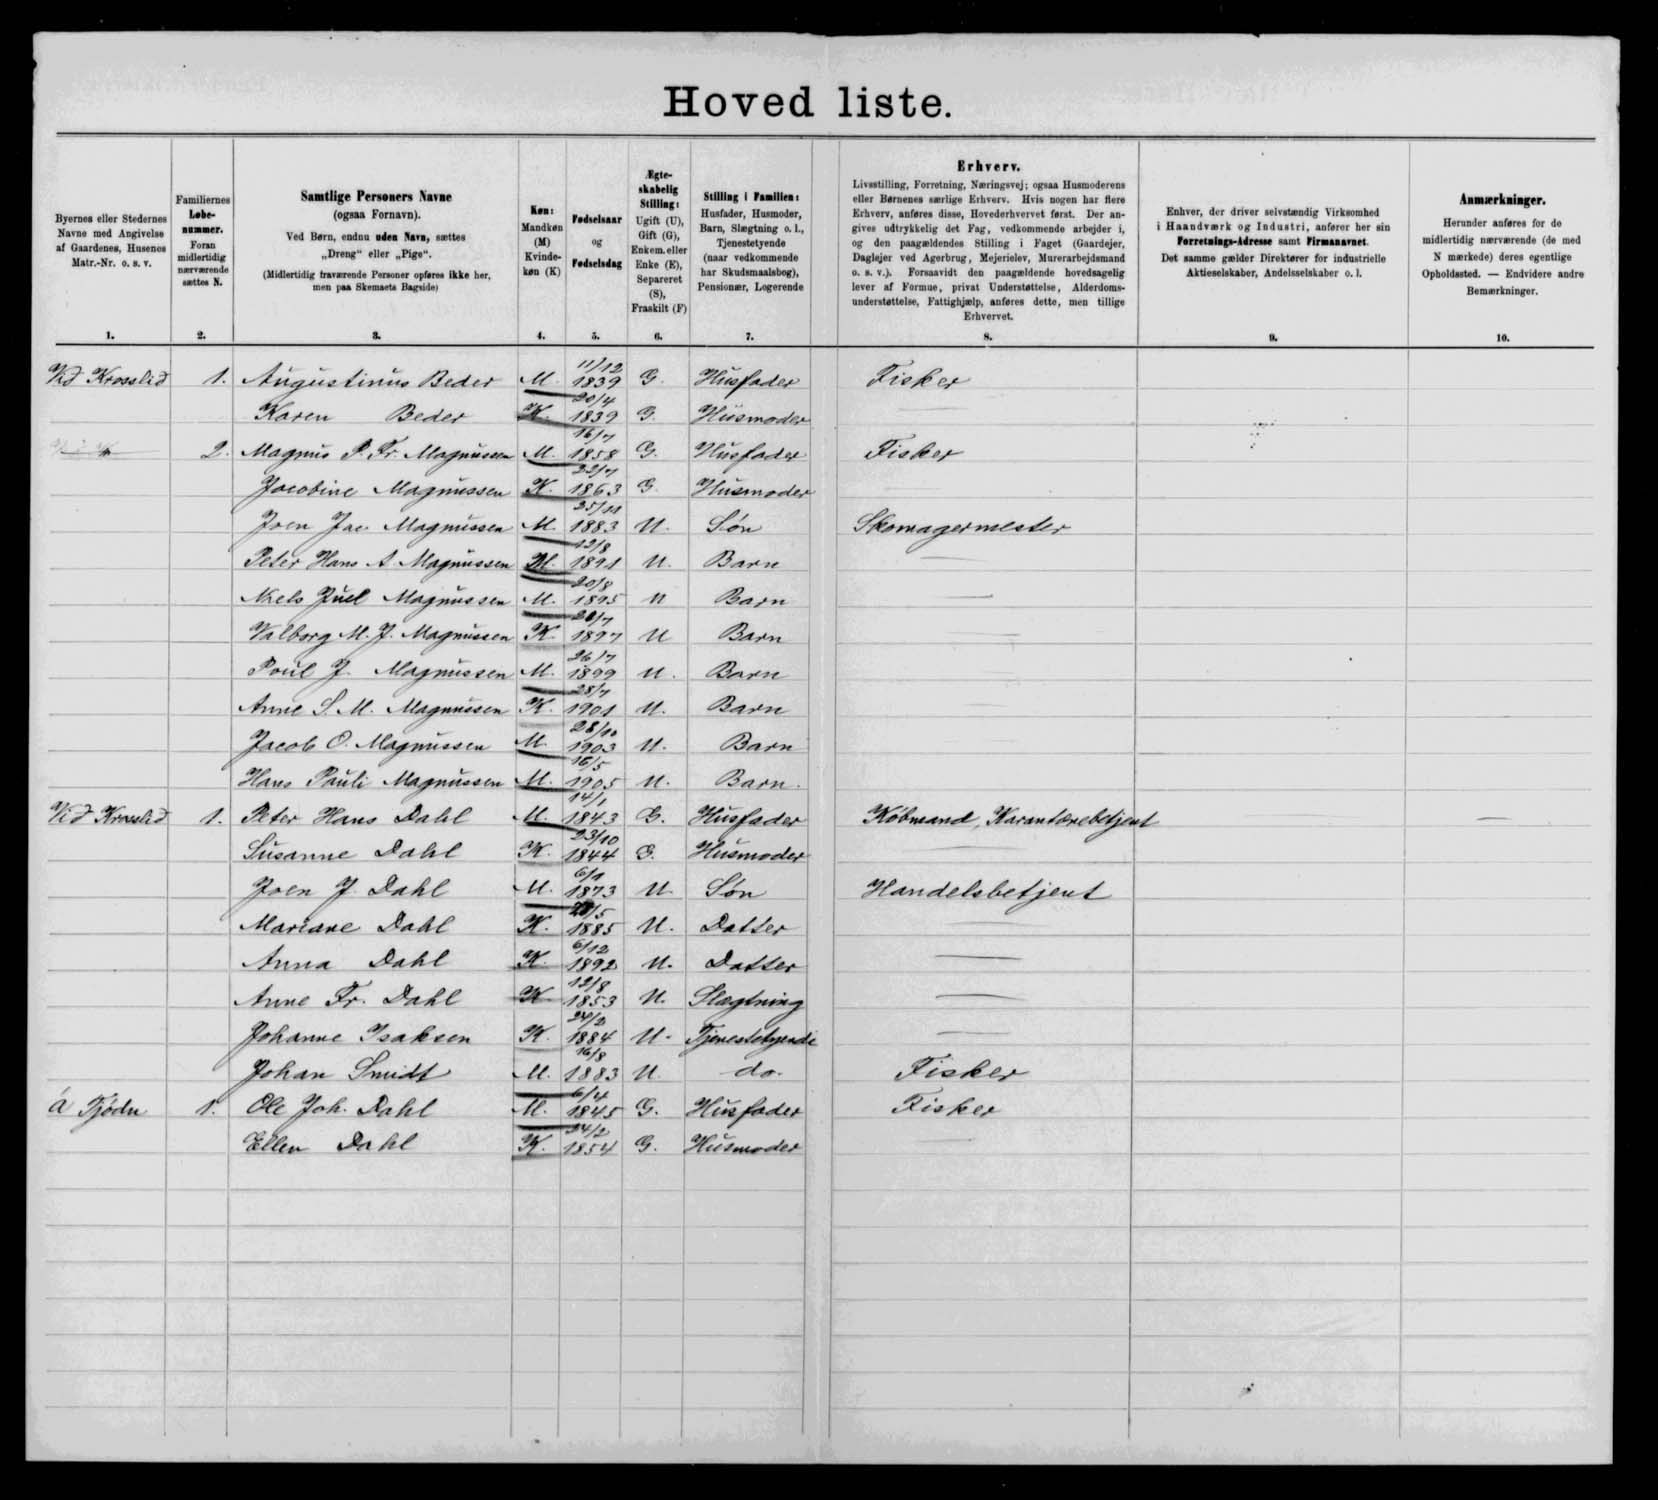 Hoved liste.
Byernes eller Stedernes Navne med Angivelse af Gaardenes, Husenes Matr.-Nr. o. s. v.
Familiernes Løbenummer. Foran midlertidig nærværende sættes N.
Samtlige Personers Navne (ogsaa Fornavn). Ved Børn, endnu uden Navn, sættes „Dreng“ eller „Pige“. (Midlertidig fraværende Personer opføres ikke her, men paa Skemaets Bagside)
Køn: Mandkøn (M) Kvindekøn (K)
Fødselsaar og Fødselsdag
Ægteskabelig Stilling: Ugift (U), Gift (G), Enkem. eller Enke (E), Separeret (S), Fraskilt (F)
Stilling i Familien: Husfader, Husmoder, Barn, Slægtning o. l., Tjenestetyende (naar vedkommende har Skudsmaalsbog), Pensionær, Logerende
Erhverv. Livsstilling, Forretning, Næringsvej; ogsaa Husmoderens eller Børnenes særlige Erhverv. Hvis nogen har flere Erhverv, anføres disse, Hovederhvervet først. Der angives udtrykkelig det Fag, vedkommende arbejder i, og den paagældendes Stilling i Faget (Gaardejer, Daglejer ved Agerbrug, Mejerielev, Murerarbejdsmand o. s. v.). Forsaavidt den paagældende hovedsagelig lever af Formue, privat Understøttelse, Alderdomsunderstøttelse, Fattighjælp, anføres dette, men tillige Erhvervet.
Enhver, der driver selvstændig Virksomhed i Haandværk og Industri, anfører her sin Forretnings-Adresse samt Firmanavnet. Det samme gælder Direktører for industrielle Aktieselskaber, Andelsselskaber o. l.
Anmærkninger. Herunder anføres for de midlertidig nærværende (de med N mærkede) deres egentlige Opholdssted. — Endvidere andre Bemærkninger.
1. 2. 3. 4. 5. 6. 7. 8. 9. 10.
Við Krosslið 1. Augustinus Beder M. 11/12 1839 G. Husfader Fisker
Karen Beder K. 20/4 1839 G. Husmoder
" 2. Magnus P. Fr. Magnussen M. 16/7 1858 G. Husfader Fisker
Jacobine Magnussen K. 22/7 1863 G. Husmoder
Joen Jac. Magnussen M. 25/11 1883 U. Søn Skomagermester
Peter Hans A. Magnussen M. 12/8 1891 U. Barn
Niels Juel Magnussen M. 20/8 1895 U Barn
Valborg M. J. Magnussen K. 1897 U Barn
Poul J. Magnussen M. 26/7 1899 U. Barn
Anne S. M. Magnussen K. 28/7 1901 U. Barn
Jacob O. Magnussen M. 28/10 1903 U. Barn
Hans Pauli Magnussen M. 16/5 1905 U. Barn.
Við Krosslið 1. Peter Hans Dahl M. 14/1 1843 G. Husfader Købmand, Karantænebetjent —
Susanne Dahl K. 23/10 1844 G. Husmoder
Joen J. Dahl M. 6/1 1873 U. Søn Handelsbetjent
Mariane Dahl K. 1885 U. Datter
Anna Dahl K. 6/12 1892 U. Datter
Anne Fr. Dahl K 12/8 1853 U. Slægtning
Johanne Isaksen K. 24/2 1884 U. Tjenestetyende
Johan Smidt M. 16/8 1883 U. do. Fisker
á Tjødn 1. Ole Joh. Dahl M. 6/4 1845 G. Husfader Fisker
Ellen Dahl K. 24/2 1854 G. Husmoder